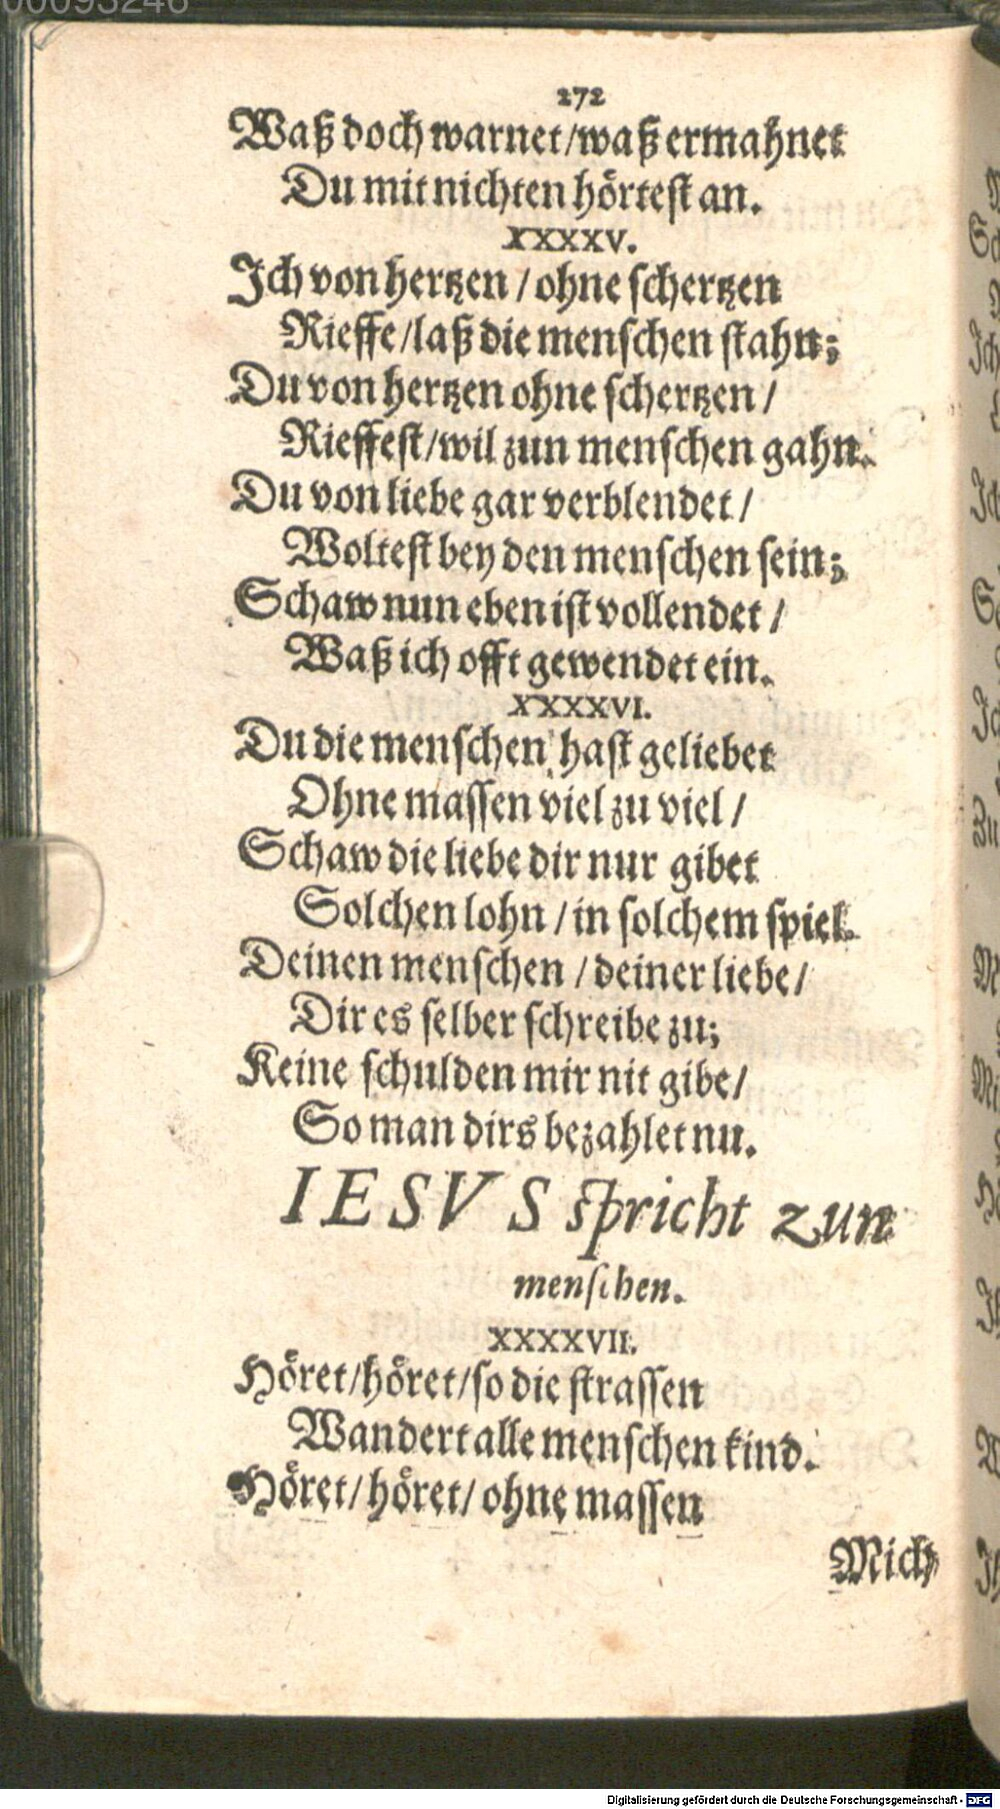 00093246
272
Waß doch warnet/waß ermahnet
Du mit nichten hörtest an.
XXXXV.
Ich von hertzen / ohne schertzen
Rieffe/laß die menschen stahn;
Du von hertzen ohne schertzen /
Rieffest/wil zun menschen gahn.
Du von liebe gar verblendet /
Woltest bey den menschen sein;
Schaw nun eben ist vollendet /
Waß ich offt gewendet ein.
XXXXVI.
Du die menschen hast geliebet
Ohne massen viel zu viel /
Schaw die liebe dir nur gibet
Solchen lohn / in solchem spiel.
Deinen menschen / deiner liebe/
Dir es selber schreibe zu;
Keine schulden mir nit gibe/
So man dirs bezahlet nu.
IESVS spricht zun
menschen.
XXXXVII.
Höret/höret/so die strassen
Wandert alle menschen kind.
Höret/höret/ ohne massen
Mich
Digitalisierung gefördert durch die Deutsche Forschungsgemeinschaft - DFG